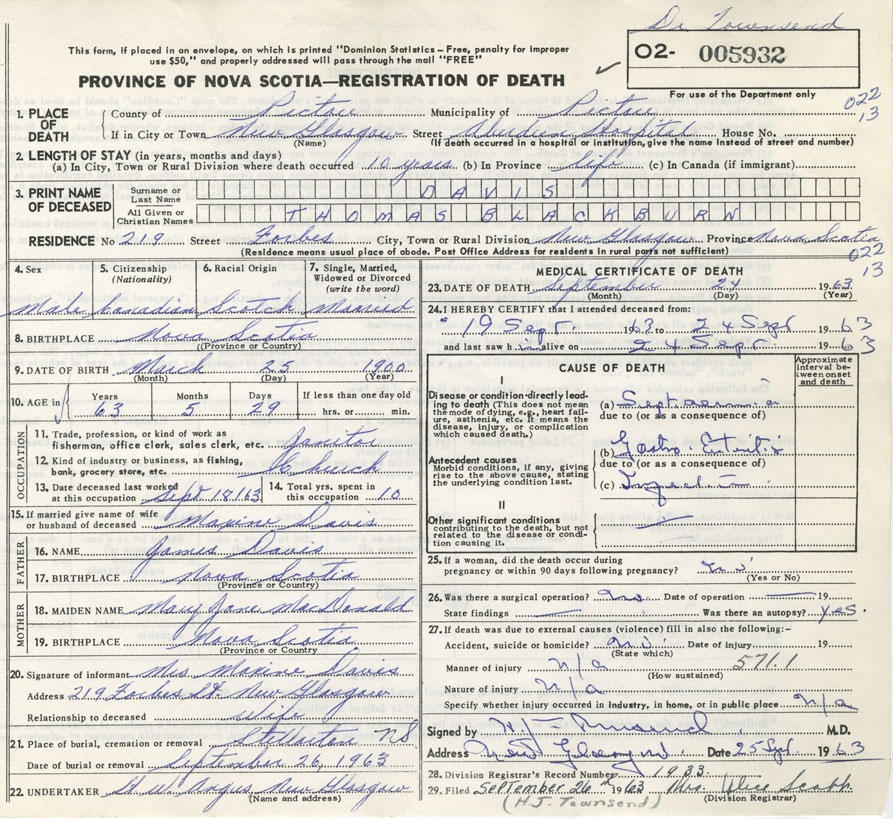 Dr. Townsend
This form, if placed in an envelope, on which is printed "Dominion Statistics – Free, penalty for improper
use $50," and properly addressed will pass through the mail "FREE"
O2- 005932
PROVINCE OF NOVA SCOTIA—REGISTRATION OF DEATH
For use of the Department only
022
13
1. PLACE OF DEATH
County of Pictou Municipality of Pictou
If in City or Town New Glasgow Street Aberdeen Hospital House No.
(Name) (If death occurred in a hospital or institution, give the name instead of street and number)
2. LENGTH OF STAY (in years, months and days)
(a) In City, Town or Rural Division where death occurred 10 years (b) In Province life (c) In Canada (if immigrant)
3. PRINT NAME OF DECEASED
Surname or Last Name DAVIS
All Given or Christian Names THOMAS BLACKBURN
RESIDENCE No 219 Street Forbes City, Town or Rural Division New Glasgow Province Nova Scotia
(Residence means usual place of abode. Post Office Address for residents in rural parts not sufficient)
022
13
4. Sex 5. Citizenship (Nationality) 6. Racial Origin 7. Single, Married, Widowed or Divorced (write the word)
Male Canadian Scotch Married
8. BIRTHPLACE Nova Scotia
(Province or Country)
9. DATE OF BIRTH March 25 1900
(Month) (Day) (Year)
10. AGE in Years Months Days If less than one day old
63 5 29 hrs. or min.
OCCUPATION
11. Trade, profession, or kind of work as
fisherman, office clerk, sales clerk, etc. Janitor
12. Kind of industry or business, as fishing,
bank, grocery store, etc. Church
13. Date deceased last worked
at this occupation Sept 18/63
14. Total yrs. spent in
this occupation 10
15. If married give name of wife
or husband of deceased Maxine Davis
FATHER
16. NAME James Davis
17. BIRTHPLACE Nova Scotia
(Province or Country)
MOTHER
18. MAIDEN NAME Mary Jane MacDonald
19. BIRTHPLACE Nova Scotia
Province or Country
20. Signature of informant Mrs Maxine Davis
Address 219 Forbes St. New Glasgow
Relationship to deceased Wife
21. Place of burial, cremation or removal Stellarton NS
Date of burial or removal September 26, 1963
22. UNDERTAKER Angus New Glasgow
(Name and address)
MEDICAL CERTIFICATE OF DEATH
23. DATE OF DEATH September 24 1963
(Month) (Day) (Year)
24. I HEREBY CERTIFY that I attended deceased from:
19 Sept. 1963 to 24 Sept 1963
and last saw him alive on 24 Sept 1963
CAUSE OF DEATH
Approximate interval between onset and death
I
Disease or condition directly leading to death (This does not mean the mode of dying, e.g., heart failure, asthenia, etc. It means the disease, injury, or complication which caused death.)
(a) Septicaemia
due to (or as a consequence of)
(b) Gastro-Enteritis
due to (or as a consequence of)
Antecedent causes
Morbid conditions, if any, giving rise to the above cause, stating the underlying condition last.
(c) Infection
II
Other significant conditions
contributing to the death, but not related to the disease or condition causing it.
25. If a woman, did the death occur during
pregnancy or within 90 days following pregnancy? no
(Yes or No)
26. Was there a surgical operation? no Date of operation — 19
State findings — Was there an autopsy? yes.
27. If death was due to external causes (violence) fill in also the following:–
Accident, suicide or homicide? no Date of injury 19
(State which)
Manner of injury n/a 571.1
(How sustained)
Nature of injury n/a
Specify whether injury occurred in industry, in home, or in public place n/a
Signed by M.D.
Address New Glasgow Date 25 Sept 1963
28. Division Registrar's Record Number 1933
29. Filed September 26th 1963 Mrs. Alice
(Division Registrar)
(H.J. Townsend)